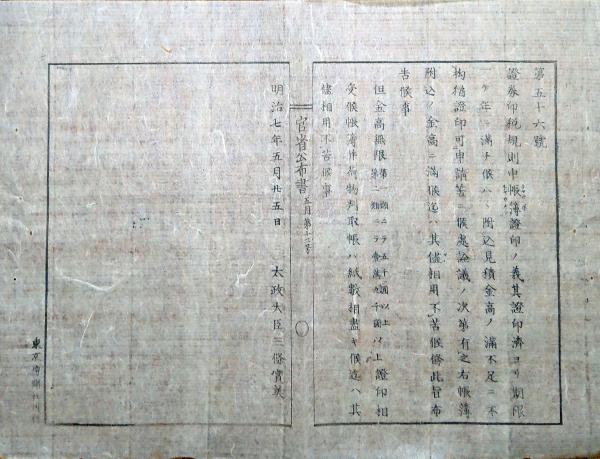 第五十六號
證券印稅規則中帳簿證印ノ義其證印濟ヨリ期限
一ケ年ニ滿チ候ハヽ附込見積金高ノ滿不足ニ不
拘猶證印可申請筈ニ候處詮議ノ次第有之右帳簿
附込ノ金高ニ滿候迄ハ其儘相用不苦候條此旨布
告候事
但金高無限 證印相
受候帳簿 荷物判取帳ハ紙數相盡キ候迄ハ其
儘相用不苦候事
官省公布書 五月第十二号
明治七年五月廿五日 太政大臣三條實美
東京